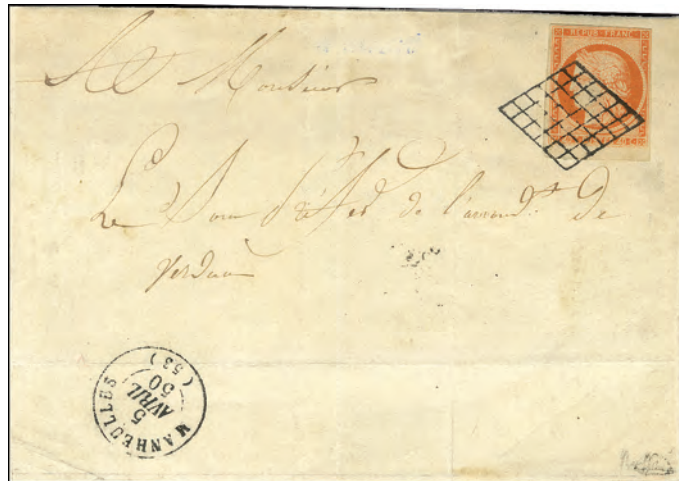 REPUB. FRANC.
A Monsieur
Le Sous Préfet de l'arrond.t De
Verdun
MANHEULLES
5
AVRIL
50
(53)